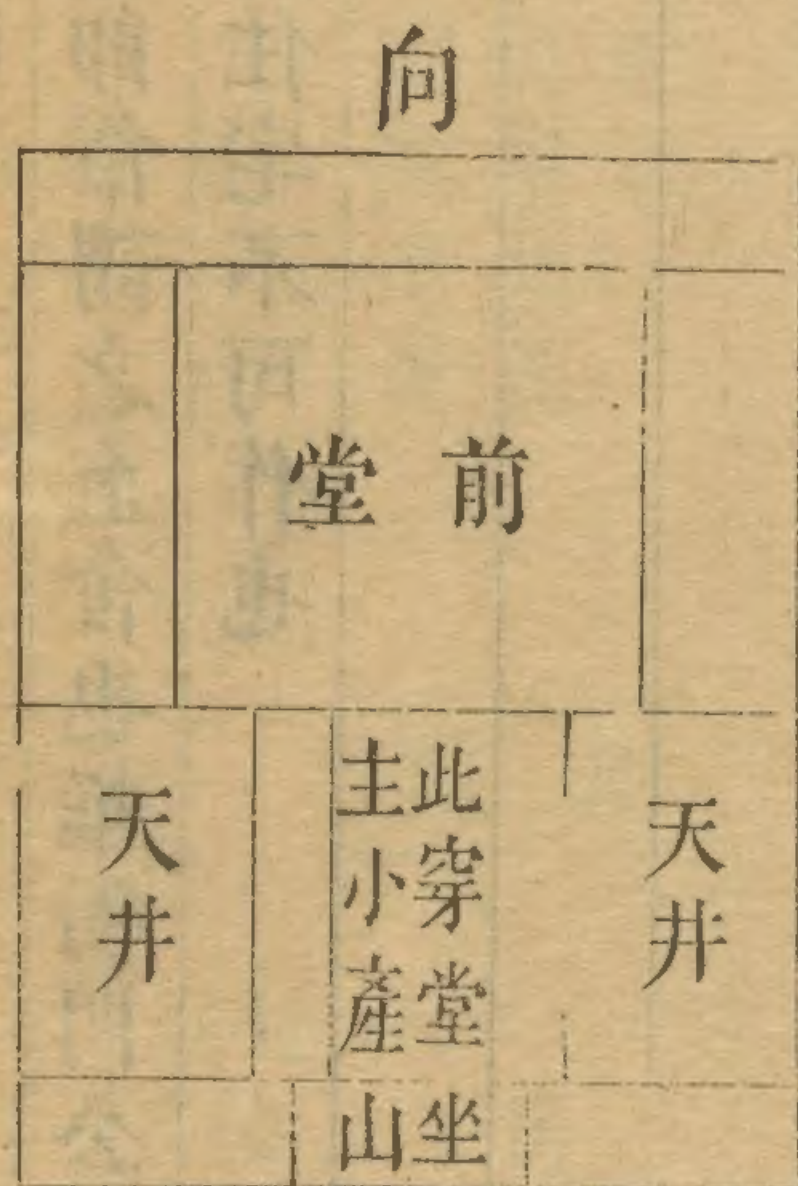 向
前堂
天井
此穿堂
主小產
天井
坐山